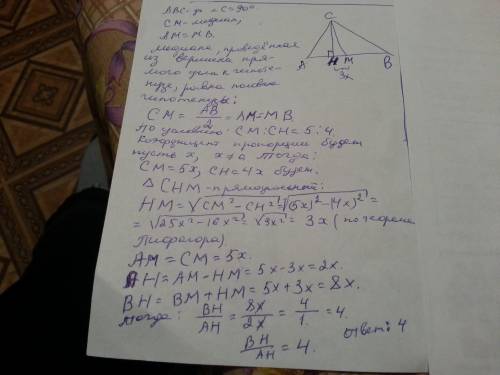 ABC - ∠C=90°
CM - медиана,
AM = MB.
Медиана, проведённая
из вершины пря-
мого угла к гипоте-
нузе, равна половине
гипотенузы:
CM = AB/2 = AM = MB
По условию: CM:CH = 5:4.
Коэффициент пропорции будем
пусть x, Тогда:
CM = 5x, CH = 4x будем.
△ CHM - прямоугольный:
HM = √CM² - CH² = √(5x)² - (4x)² =
= √25x² - 16x² = √9x² = 3x (по теореме
Пифагора).
AM = CM = 5x.
AH = AM - HM = 5x - 3x = 2x.
BH = BM + HM = 5x + 3x = 8x.
Тогда: BH/AH = 8x/2x = 4/1 = 4.
BH/AH = 4.
Ответ: 4
C
A H M B
3x